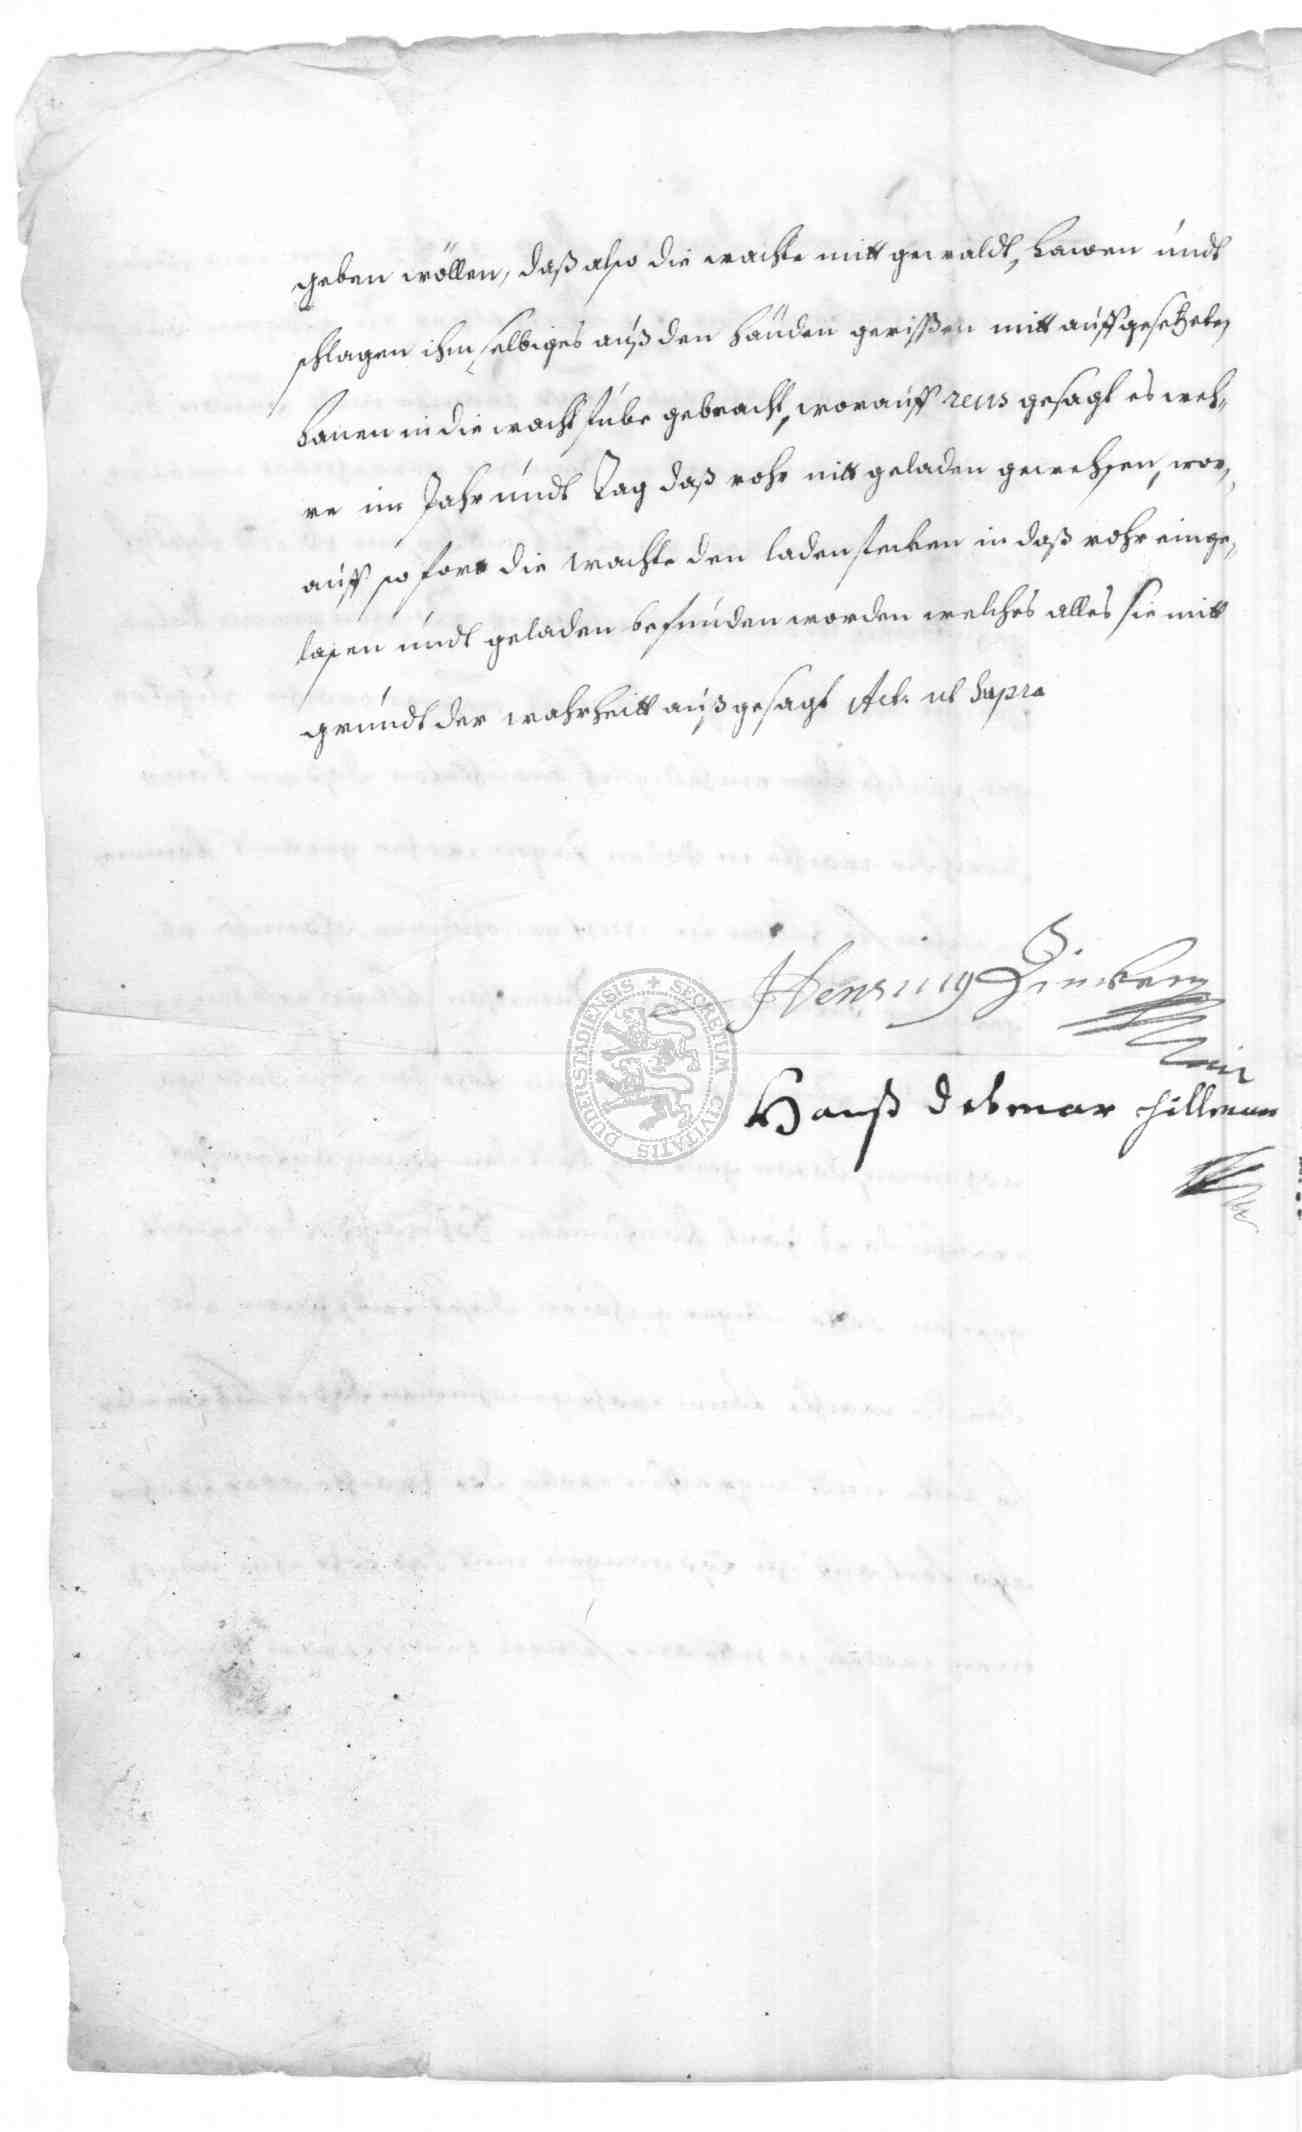 geben wöllen, daß also die wachte mitt gewaldt, hawen undt
schlagen ihm selbiges auß den händen gerißen mitt auffgesetzeten
hanen in die wachtstube gebracht, worauff reus gesagt es weh¬
re im Jahr undt Tag daß rohr nitt geladen gewehsen, wor¬
auff sofort die wachte den ladenstecken in daß rohr einge¬
laßen undt geladen befunden worden welches alles sie mitt
grundt der wahrheitt außgesagt Act. ut supra
Henning
Hanß detmar hillman
SECRETUM CIVITATIS DUDERSTADIENSIS